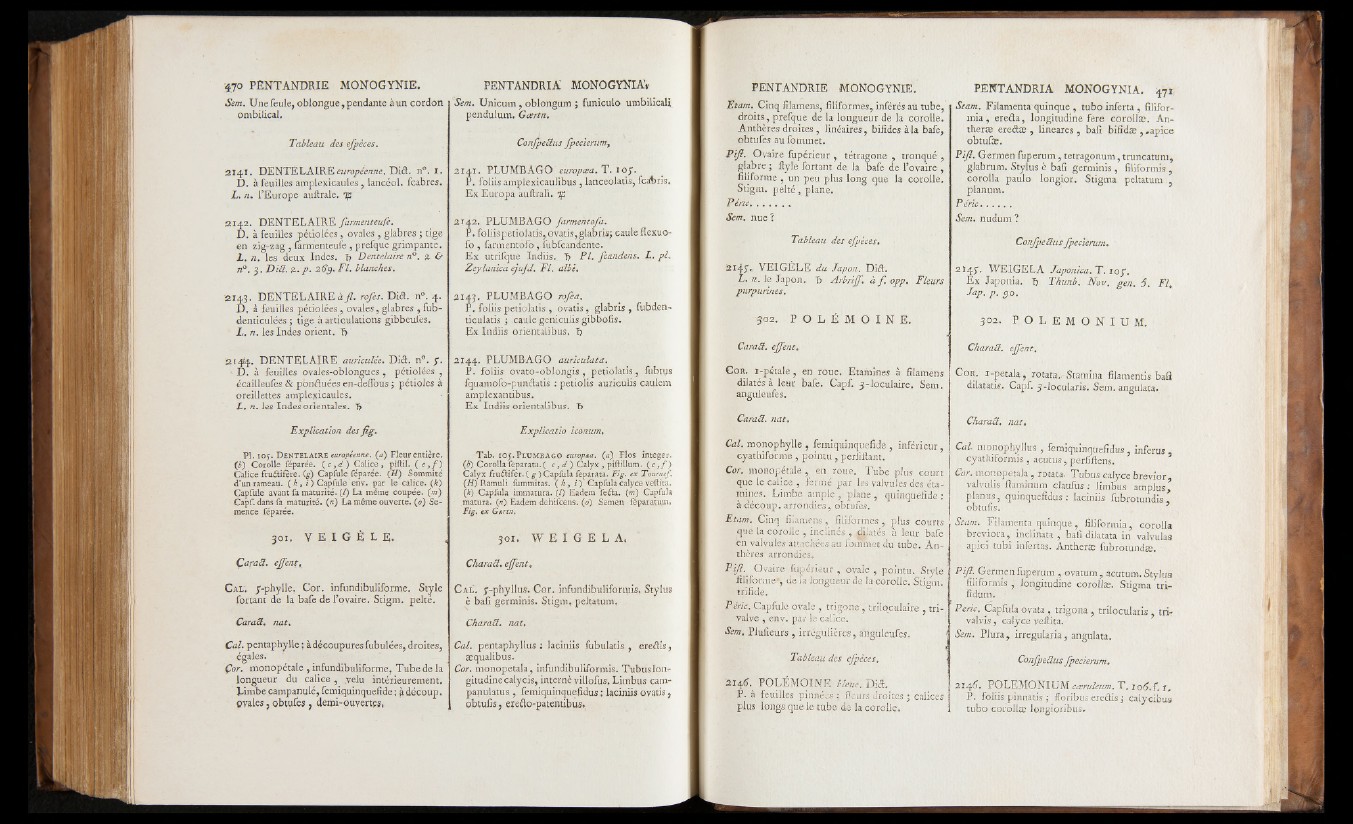 470 PENTANDRIE MONOGYNIE.
Sem. Une ſeule, oblongue, pendante à un cordon
ombilical.
Tableau des eſpèces.
2141. DENTELAIRE européenne. Dict. n°. 1.
D. à feuilles amplexicaules, lancéol. ſcabres.
L. n. l'Europe auſtrale. ♃
2142. DENTELAIRE ſarmenteuſe.
D. à feuilles pétiolées, ovales, glabres ; tige
en zig-zag, ſarmenteuſe, preſque grimpante.
L. n. les deux Indes. ♄ Dentelaire n°. 2 &
n°. 3. Dict. 2. p. 269. Fl. blanches.
2143. DENTELAIRE à fl. roſes. Dict. n°. 4.
D. à feuilles pétiolées, ovales, glabres, ſub-
denticulées ; tige à articulations gibbeuſes.
L. n. les Indes orient. ♄
2144. DENTELAIRE auriculée. Dict. n°. 5.
D. à feuilles ovales-oblongues, pétiolées,
écailleuſes & ponctuées en-deſſous ; pétioles à
oreillettes amplexicaules.
L. n. les Indes orientales. ♄
Explication des fig.
Pl. 105. DENTELAIRE européenne. (a) Fleur entière.
(b) Corolle ſéparée. (c, d) Calice, piſtil. (e, f)
Calice fructifère. (g) Capſule ſéparée. (H) Sommité
d'un rameau. (h, i) Capſule env. par le calice. (k)
Capſule avant ſa maturité. (l) La même coupée. (m)
Capſ. dans ſa maturité. (n) La même ouverte. (o) Se-
mence ſéparée.
301. VEIGÈLE.
Caract. eſſent.
CAL. 5-phylle. Cor. infundibuliforme. Style
ſortant de la baſe de l'ovaire. Stigm. pelté.
Caract. nat.
Cal. pentaphylle : à découpures ſubulées, droites,
égales.
Cor. monopétale, infundibuliforme. Tube de la
longueur du calice, velu intérieurement.
Limbe campanulé, ſemiquinquefide ; à découp.
ovales, obtuſes, demi-ouvertes.
PENTANDRIA MONOGYNIA.
Sem. Unicum, oblongum ; funiculo umbilicali
pendulum. Gærtn.
Conſpectus ſpecierum.
2141. PLUMBAGO europæa. T. 105.
P. foliis amplexicaulibus, lanceolatis, ſcabris.
Ex Europa auſtrali. ♃
2142. PLUMBAGO ſarmentoſa.
P. foliis petiolatis, ovatis, glabris ; caule flexuo-
ſo, ſarmentoſo, ſubſcandente.
Ex utriſque Indiis. ♄ Pl. ſcandens. L. pl.
Zeylanica ejuſd. Fl. albi.
2143. PLUMBAGO roſea.
P. foliis petiolatis, ovatis, glabris, ſubden-
ticulatis ; caule geniculis gibboſis.
Ex Indiis orientalibus. ♄
2144. PLUMBAGO auriculata.
P. foliis ovato-oblongis, petiolatis, ſubtus
ſquamoſo-punctatis : petiolis auriculis caulem
amplexantibus.
Ex Indiis orientalibus. ♄
Explicatio iconum.
Tab. 105. PLUMBAGO europæa. (a) Flos integer.
(b) Corolla ſeparata. (c, d) Calyx, piſtillum. (e, f)
Calyx fructifer. (g) Capſula ſeparata. Fig. ex Tournef.
(H) Ramuli ſummitas. (h, i) Capſula calyce veſtita.
(k) Capſula immatura. (l) Eadem ſecta. (m) Capſula
matura. (n) Eadem dehiſcens. (o) Semen ſeparatum.
Fig. ex Gærtn.
301. WEIGELA.
Charact. eſſent.
CAL. 5-phyllus. Cor. infundibuliformis. Stylus
è baſi germinis. Stigm. peltatum.
Charact. nat.
Cal. pentaphyllus : laciniis ſubulatis, erectis,
æqualibus.
Cor. monopetala, infundibuliformis. Tubus lon-
gitudine calycis, internè villoſus. Limbus cam-
panulatus, ſemiquinquefidus : laciniis ovatis,
obtuſis, erecto-patentibus.
PENTANDRIE MONOGYNIE.
Etam. Cinq filamens, filiformes, inſérés au tube,
droits, preſque de la longueur de la corolle.
Anthères droites, linéaires, bifides à la baſe,
obtuſes au ſommet.
Piſt. Ovaire ſupérieur, tétragone, tronqué,
glabre ; ſtyle ſortant de la baſe de l'ovaire,
filiforme, un peu plus long que la corolle.
Stigm. pelté, plane.
Péric. . . . . . .
Sem. nue ?
Tableau des eſpèces.
2145. VEIGÈLE du Japon. Dict.
L. n. le Japon. ♄ Arbriſſ. à f. opp. Fleurs
purpurines.
302. POLÉMOINE.
Caract. eſſent.
COR. 1-pétale, en roue. Etamines à filamens
dilatés à leur baſe. Capſ. 3-loculaire. Sem.
anguleuſes.
Caract. nat.
Cal. monophylle, ſemiquinquefide, inférieur,
cyathiforme, pointu, perſiſtant.
Cor. monopétale, en roue. Tube plus court
que le calice, fermé par les valvules des éta-
mines. Limbe ample, plane, quinquefide :
à découp. arrondies, obtuſes.
Etam. Cinq filamens, filiformes, plus courts
que la corolle, inclinés, dilatés à leur baſe
en valvules attachées au ſommet du tube. An-
thères arrondies.
Piſt. Ovaire ſupérieur, ovale, pointu. Style
filiforme, de la longueur de la corolle. Stigm.
trifide.
Péric. Capſule ovale, trigone, triloculaire, tri-
valve, env. par le calice.
Sem. Pluſieurs, irrégulières, anguleuſes.
Tableau des eſpèces.
2146. POLÉMOINE bleue. Dict.
P. à feuilles pinnées : fleurs droites ; calices
plus longs que le tube de la corolle.
PENTANDRIA MONOGYNIA. 471
Stam. Filamenta quinque, tubo inſerta, filifor-
mia, erecta, longitudine fere corollæ. An-
theræ erectæ, lineares, baſi bifidæ, apice
obtuſæ.
Piſt. Germen ſuperum, tetragonum, truncatum,
glabrum. Stylus è baſi germinis, filiformis,
corolla paulo longior. Stigma peltatum,
planum.
Péric. . . . . .
Sem. nudum ?
Conſpectus ſpecierum.
2145. WEIGELA Japonica. T. 105.
Ex Japonia. ♄ Thunb. Nov. gen. 5. Fl.
Jap. p. 90.
302. POLEMONIUM.
Charact. eſſent.
COR. 1-petala, rotata. Stamina filamentis baſi
dilatatis. Capſ. 3-locularis. Sem. angulata.
Charact. nat.
Cal. monophyllus, ſemiquinquefidus, inferus,
cyathiformis, acutus, perſiſtens.
Cor. monopetala, rotata. Tubus calyce brevior,
valvulis ſtaminum clauſus : limbus amplus,
planus, quinquefidus : laciniis ſubrotundis,
obtuſis.
Stam. Filamenta quinque, filiformia, corolla
breviora, inclinata, baſi dilatata in valvulas
apici tubi inſertas. Antheræ ſubrotundæ.
Piſt. Germen ſuperum, ovatum, acutum. Stylus
filiformis, longitudine corollæ. Stigma tri-
fidum.
Peric. Capſula ovata, trigona, trilocularis, tri-
valvis, calyce veſtita.
Sem. Plura, irregularia, angulata.
Conſpectus ſpecierum.
2146. POLEMONIUM cæruleum. T. 106. f. 1.
P. foliis pinnatis : floribus erectis ; calycibus
tubo corollæ longioribus.